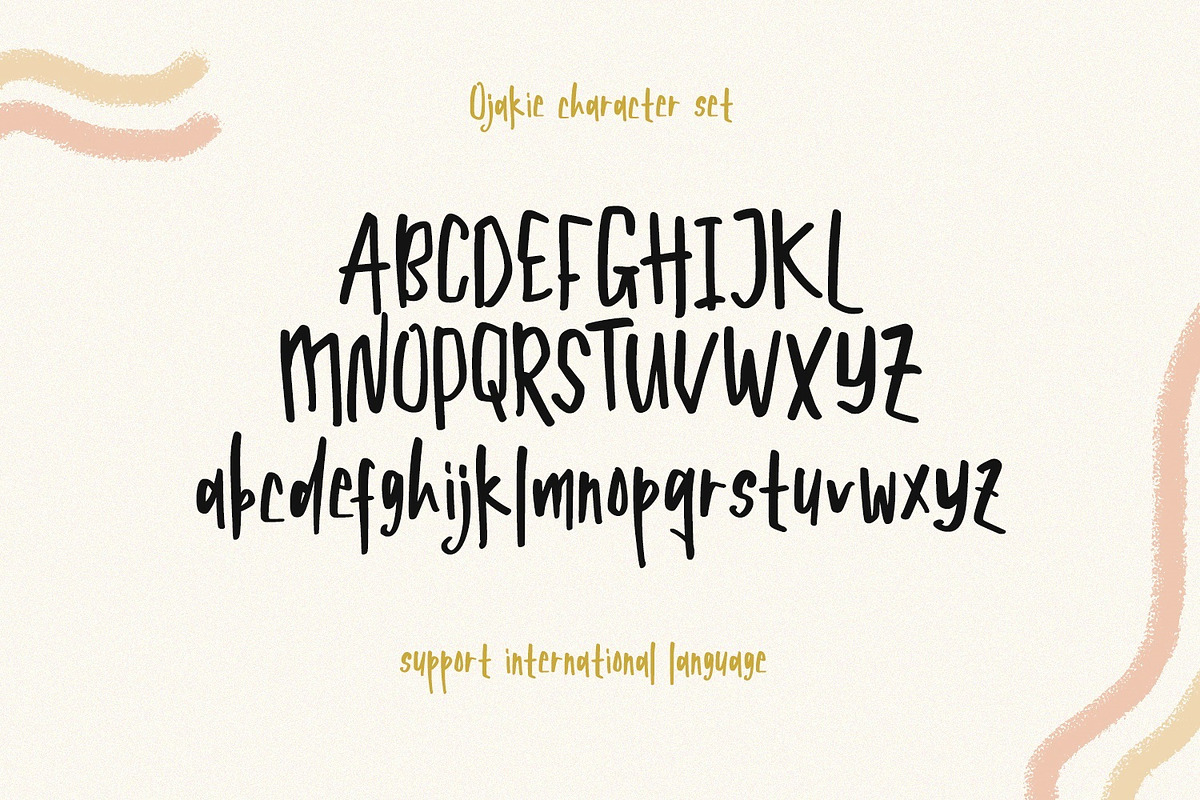 Ojakie character set
ABCDEFGHIJKL
MNOPQRSTUVWXYZ
abcdefghijklmnopqrstuvwxyz
support international language